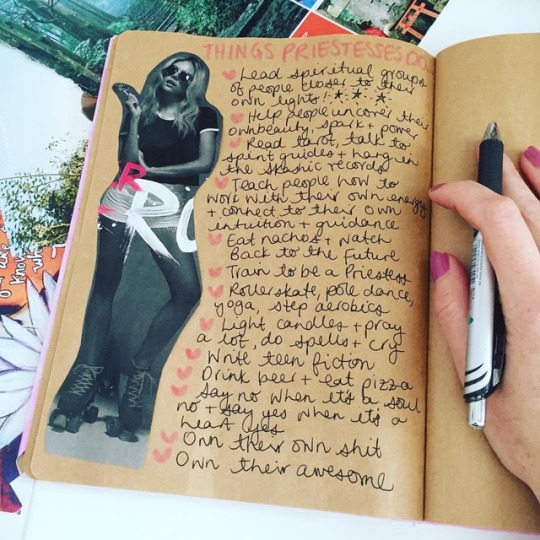 THINGS PRIESTESSES DO.
Lead spiritual groups
of people closer to their
own lights!
Help people uncover their
own beauty, spark + power
Read tarot, talk to
spirit guides + hang in
the akashic records
Teach people how to
work with their own energy
+ connect to their own
intuition + guidance
Eat nachos + watch
Back to the Future
Train to be a Priestess
Rollerskate, pole dance,
yoga, step aerobics
Light candles + pray
a lot, do spells + cry
Write teen fiction
Drink beer + eat pizza
Say no when it's a soul
no + say yes when it's a
heart yes
Own their own shit
Own their awesome
R
RI
know